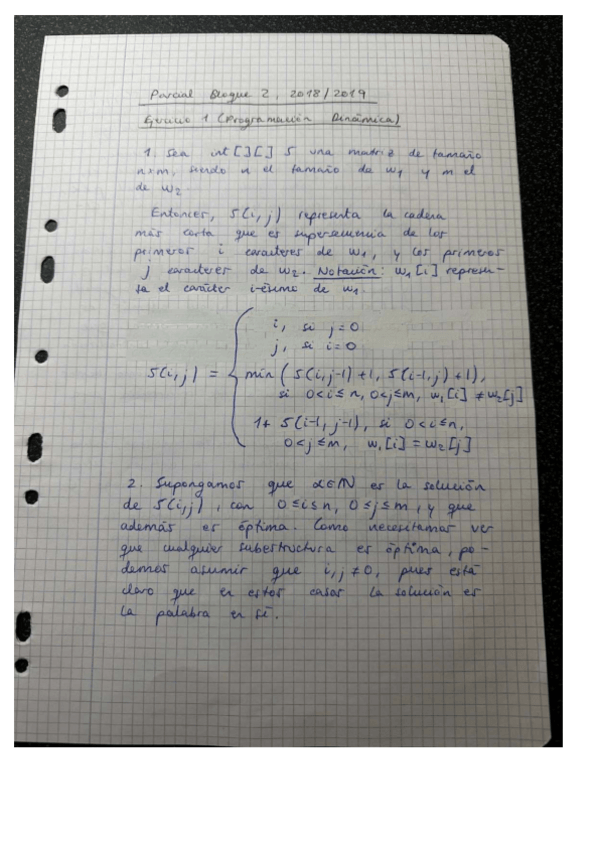 Parcial Bloque 2, 2018/2019
Ejercicio 1 (Programación Dinámica)
1. Sea int [][] S una matriz de tamaño
n×m, siendo n el tamaño de w₁ y m el
de w₂.
Entonces, S(i,j) representa la cadena
más corta que es supersecuencia de los
primeros i caracteres de w₁, y los primeros
j caracteres de w₂. Notación: w₁[i] represen-
ta el carácter i-ésimo de w₁.
i, si j=0
j, si i=0
S(i,j) = { min(S(i,j-1)+1, S(i-1,j)+1),
si 0<i≤n, 0<j≤m, w₁[i] ≠ w₂[j]
1+ S(i-1, j-1), si 0<i≤n,
0<j≤m, w₁[i] = w₂[j]
2. Supongamos que α∈ℕ es la solución
de S(i,j), con 0≤i≤n, 0≤j≤m, y que
además es óptima. Como necesitamos ver
que cualquier subestructura es óptima, po-
demos asumir que i,j ≠ 0, pues está
claro que en estos casos la solución es
la palabra en sí.